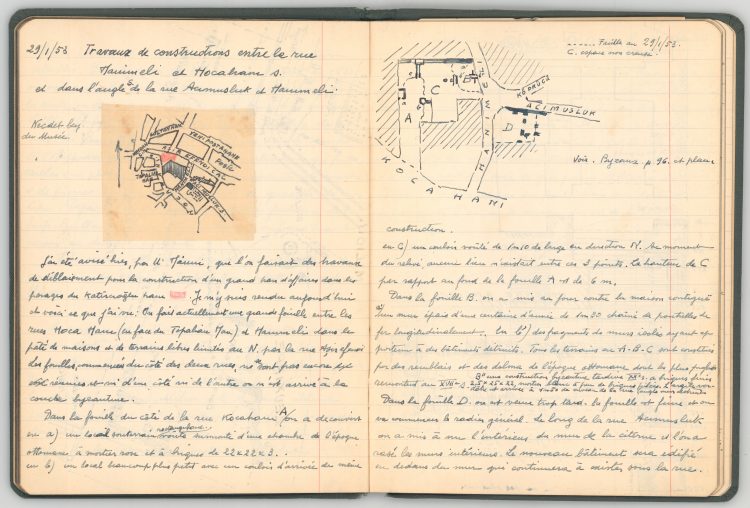 29/1/53 Travaux de constructions entre la rue
Hammeli et Hocahanı s.
et dans l'angle de la rue Acımusluk et Hammeli.
Necdet bey
du Musée.
YENI POSTAHANE
AŞIR EFENDI CAD.
POSTA
J'ai été avisé hier, par Mr Mamri, que l'on faisait des travaux
de déblaiement pour la construction d'un grand han d'affaires dans les
parages du Katircıoğlu hanı. Je m'y suis rendu aujourd'hui
et voici ce que j'ai vu: On fait actuellement une grande fouille entre les
rues Hoca Hanı (en face du Topalian Han) et Hammeli dans le
pâté de maisons et de terrains libres limités au N. par la rue Aşirefendi
Les fouilles, commencées du côté des deux rues, ne sont pas encore
réunies et ni d'un côté ni de l'autre on n'est arrivé à la
couche byzantine.
Dans la fouille du côté de la rue Kocahanı A/ on a découvert
en a) un local souterrain rectangulaire voûté surmonté d'une chambre de l'époque
ottomane à mortier rose et à briques de 22x22x3.
en b) un local beaucoup plus petit avec un couloir d'arrivée du même
---- Fouille au 29/1/53.
C. espace non creusé
A
C
B
D
a
b
KÖPRÜCÜ
ACIMUSLUK
KOCAHANI
Voir. Byzanz p. 96. et plan
construction.
en c) un couloir voûté de 1m10 de large en direction N. Au moment
du relevé, aucun lien n'existait entre ces 3 points. La hauteur de C
par rapport au fond de la fouille A est de 6 m.
Dans la fouille B. on a mis au jour contre la maison contiguë
a) un mur épais d'une centaine d'année de 1m20 chaîné de poutrelles de
fer longitudinalement. En b') des fragments de murs isolés ayant ap-
partenu à des bâtiments détruits. Tous les terrains en A-B-C sont constitués
par des remblais et des débris de l'époque ottomane dont les plus profonds
remontent au
Dans la fouille D. on est venu trop tard. La fouille est finie et on
va commencer le radier général. Le long de la rue Acımusluk
on a mis à nu l'intérieur du mur de la citerne et l'on a
rasé les murs intérieurs. Le nouveau bâtiment sera édifié
en dedans du mur qui continuera à exister sous la rue.